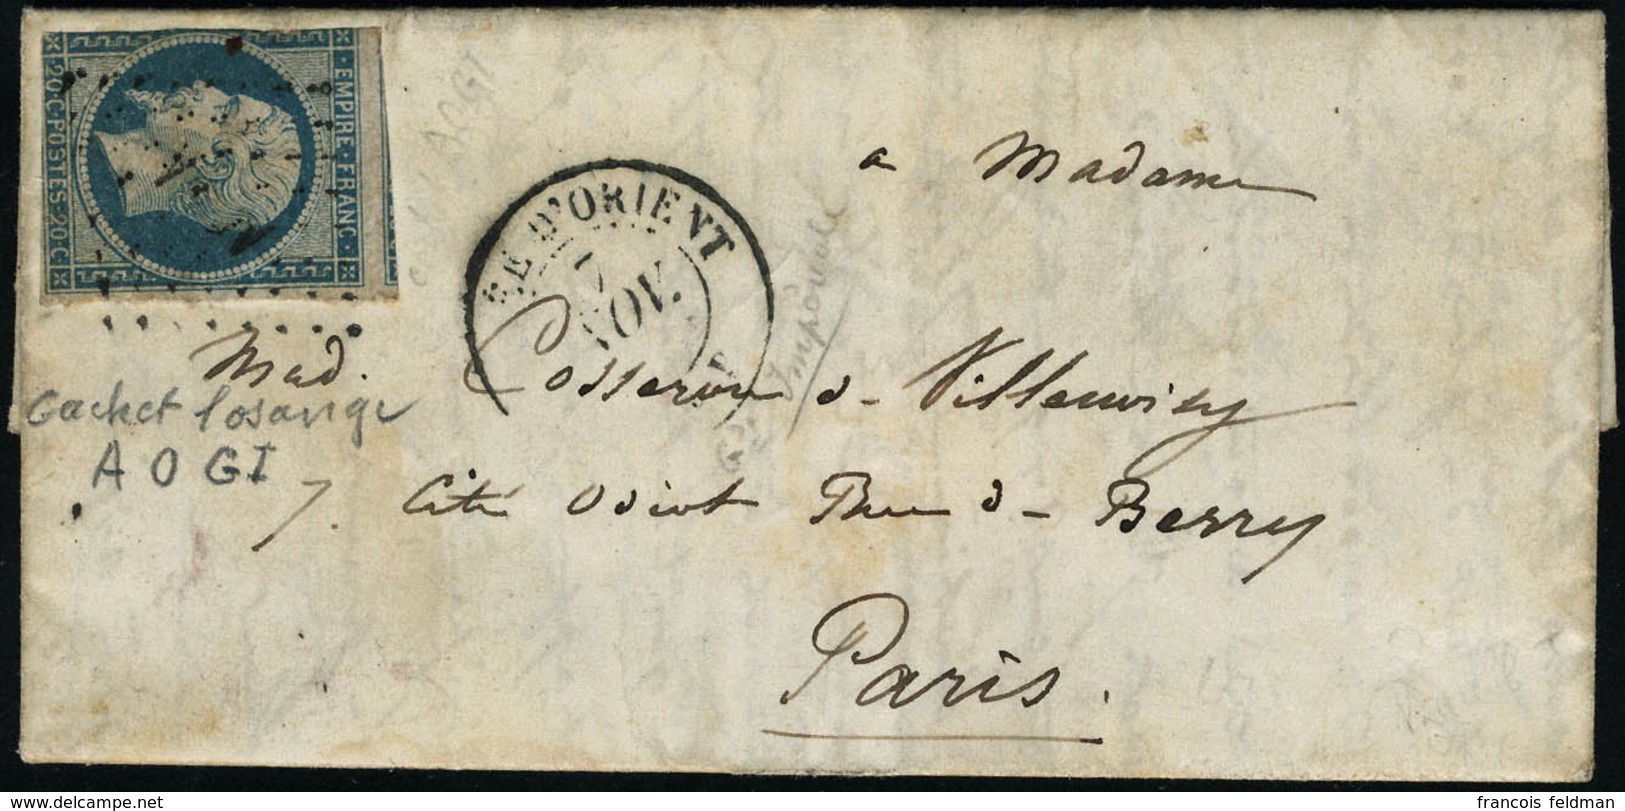 EMPIRE · FRANC ·
20 · C · POSTES · 20 · C
AOGI
EE D'ORIENT
7
NOV.
a Madame
Mad. Cosseron d- Villenoisy
Impériale
Cachet losange
A O GI
7. Cité Odiot Rue d- Berry
Paris.
www.delcampe.net
francois feldman